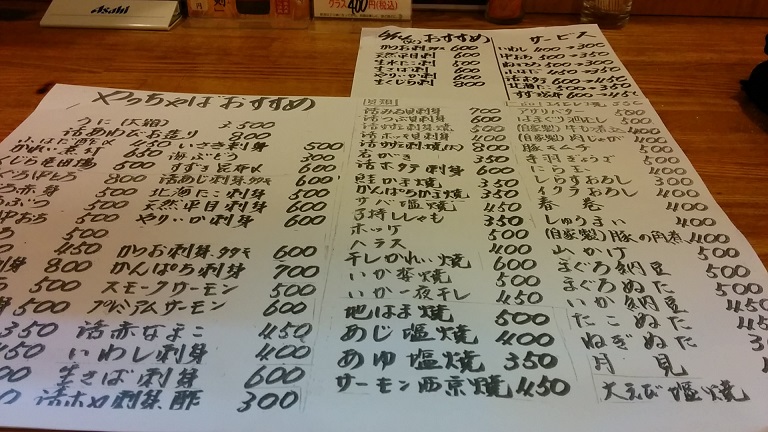 Asahi
グラス400円(税込)
おすすめ
かつお刺 タタキ 600
天然平目刺 600
生水たこ刺 500
生さば刺 600
やりいか刺 600
まぐろ刺 800
サービス
いわし 400→300
中おち 500→300
600→450
やっちゃばおすすめ
うに(天箱) 3,500
活あわびお造り 800
450 いさき刺身 500
650 海ぶどう 300
くじら竜田揚 500 すずき昆布〆 600
800 活あじ刺身・タタキ 600
赤身 500 北海たこ刺身 500
500 天然平目刺身 600
中おち 500 やりいか刺身 600
500
450 かつお刺身・タタキ 600
刺身 800 かんぱち刺身 700
500 スモークサーモン 500
刺身 500 プレミアムサーモン 600
350 活赤なまこ 450
450 いわし刺身 400
生さば刺身 600
活ホヤ刺身・酢 300
貝類
活みる貝刺身 700
活つぶ貝刺身 500
活ホッキ貝刺身 400
岩がき 350
活ホタテ刺身 600
鮭かま焼 350
かんぱちかま焼 350
サバ塩焼 450
子持ししゃも 350
ホッケ 500
ハラス 400
干しかれい焼 600
いか姿焼 400
いか一夜干し 450
地はま焼 500
あじ塩焼 400
あゆ塩焼 350
サーモン西京焼 450
はまぐり酒むし 600
(自家製)牛もつ煮込 400
(自家製)肉じゃが 400
豚キムチ 500
手羽ぎょうざ 500
にら玉 400
しらすおろし 300
イクラおろし 500
春巻 400
しゅうまい 400
(自家製)豚の角煮 400
山かけ 500
まぐろ納豆 500
まぐろぬた 500
いか納豆 450
たこぬた
ねぎぬた
月見
大えび塩焼